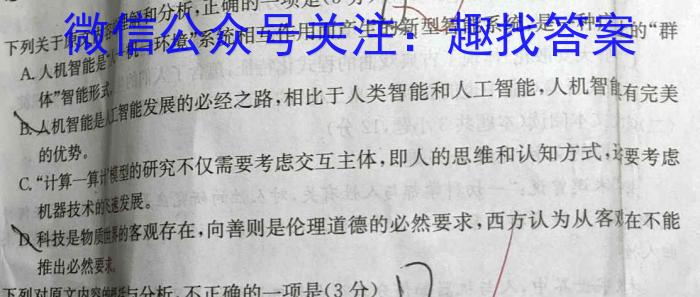 和分析,正确的一项是(3分)
下列关于原
微信公众号关注:趣找答案
A.人机智能是"人—机—环境"系统相互作用而产生的新型智能系统,是一种的"群
体"智能形式。
B.人机智能是人工智能发展的必经之路,相比于人类智能和人工智能,人机智能有完美
的优势。
C."计算—算计"模型的研究不仅需要考虑交互主体,即人的思维和认知方式,还要考虑
机器技术的快速发展。
D.科技是物质世界的客观存在,向善则是伦理道德的必然要求,西方认为从客观存在不能
推出必然要求。
下列对原文内容的概括与分析,不正确的一项是(3分)